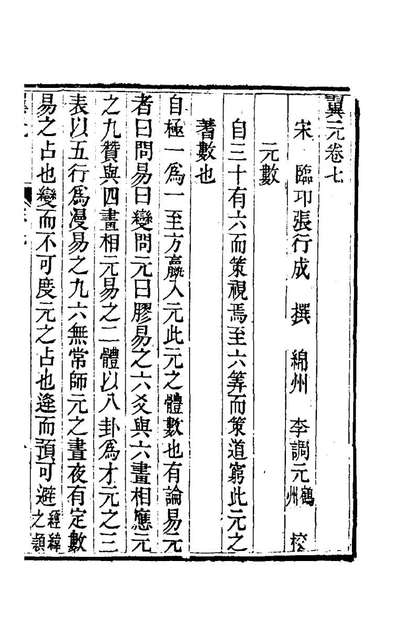 翼元卷七
宋 臨卭張行成 撰 綿州 李調元鶴州 校
元數
自三十有六而策視焉至六筭而策道窮此元之
蓍數也
自極一爲一至方贏入元此元之體數也有論易元
者曰問易曰變問元曰膠易之六爻與六畫相應元
之九贊與四畫相元易之二體以八卦爲才元之三
表以五行爲漫易之九六無常師元之晝夜有定數
易之占也變而不可度元之占也逢而預可避經緯之類